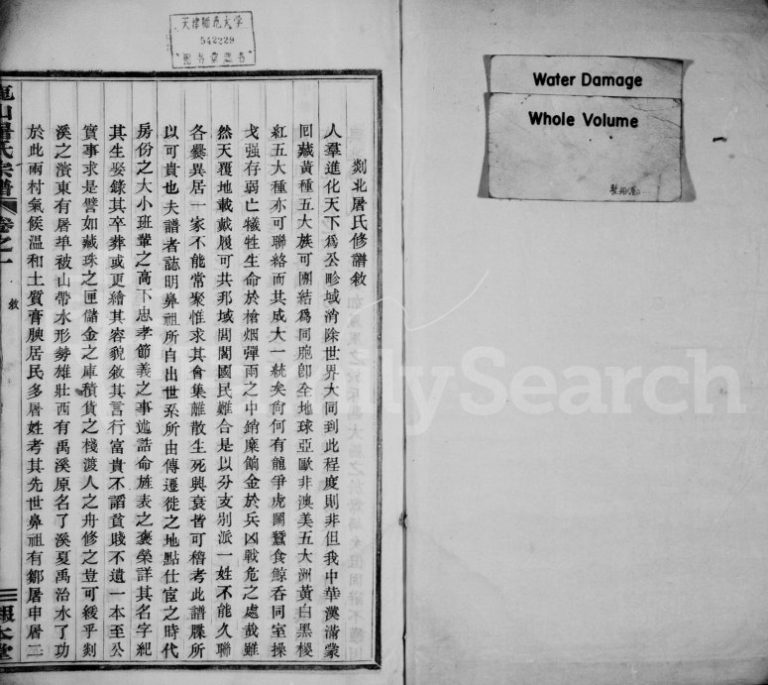 天津師范大学
542229
图书馆藏书
Water Damage
Whole Volume
剡北屠氏修譜敘
人羣進化天下為公畛域消除世界大同到此程度則非但我中華漢滿蒙
回藏黃種五大族可團結為同胞卽全地球亞歐非澳美五大洲黃白黑椶
紅五大種亦可聯絡而其成大一統矣尙何有龍爭虎鬭蠶食鯨吞同室操
戈强存弱亡犧牲生命於槍烟彈雨之中銷糜餉金於兵凶戰危之處哉雖
然天覆地載戴履可共邦域閭閻國民難合是以分支别派一姓不能久聯
各爨異居一家不能常聚惟求其會集離散生死興衰皆可稽考此譜牒所
以可貴也夫譜者誌明鼻祖所自出世系所由傳遷徙之地點仕宦之時代
房份之大小班輩之高下忠孝節義之事誥命旌表之褒榮詳其名字紀
其生娶錄其卒葬或更繪其容貌敘其言行富貴不諂貧賤不遺一本至公
實事求是譬如藏珠之匣儲金之庫積貨之棧渡人之舟修之豈可緩乎剡
溪之濱東有屠㟁被山帶水形勢雄壯西有禹溪原名了溪夏禹治水了功
於此兩村氣候溫和土質膏腴居民多屠姓考其先世鼻祖有鄒屠申屠二
山屠氏宗譜
卷之一
敘
報本堂
FamilySearch